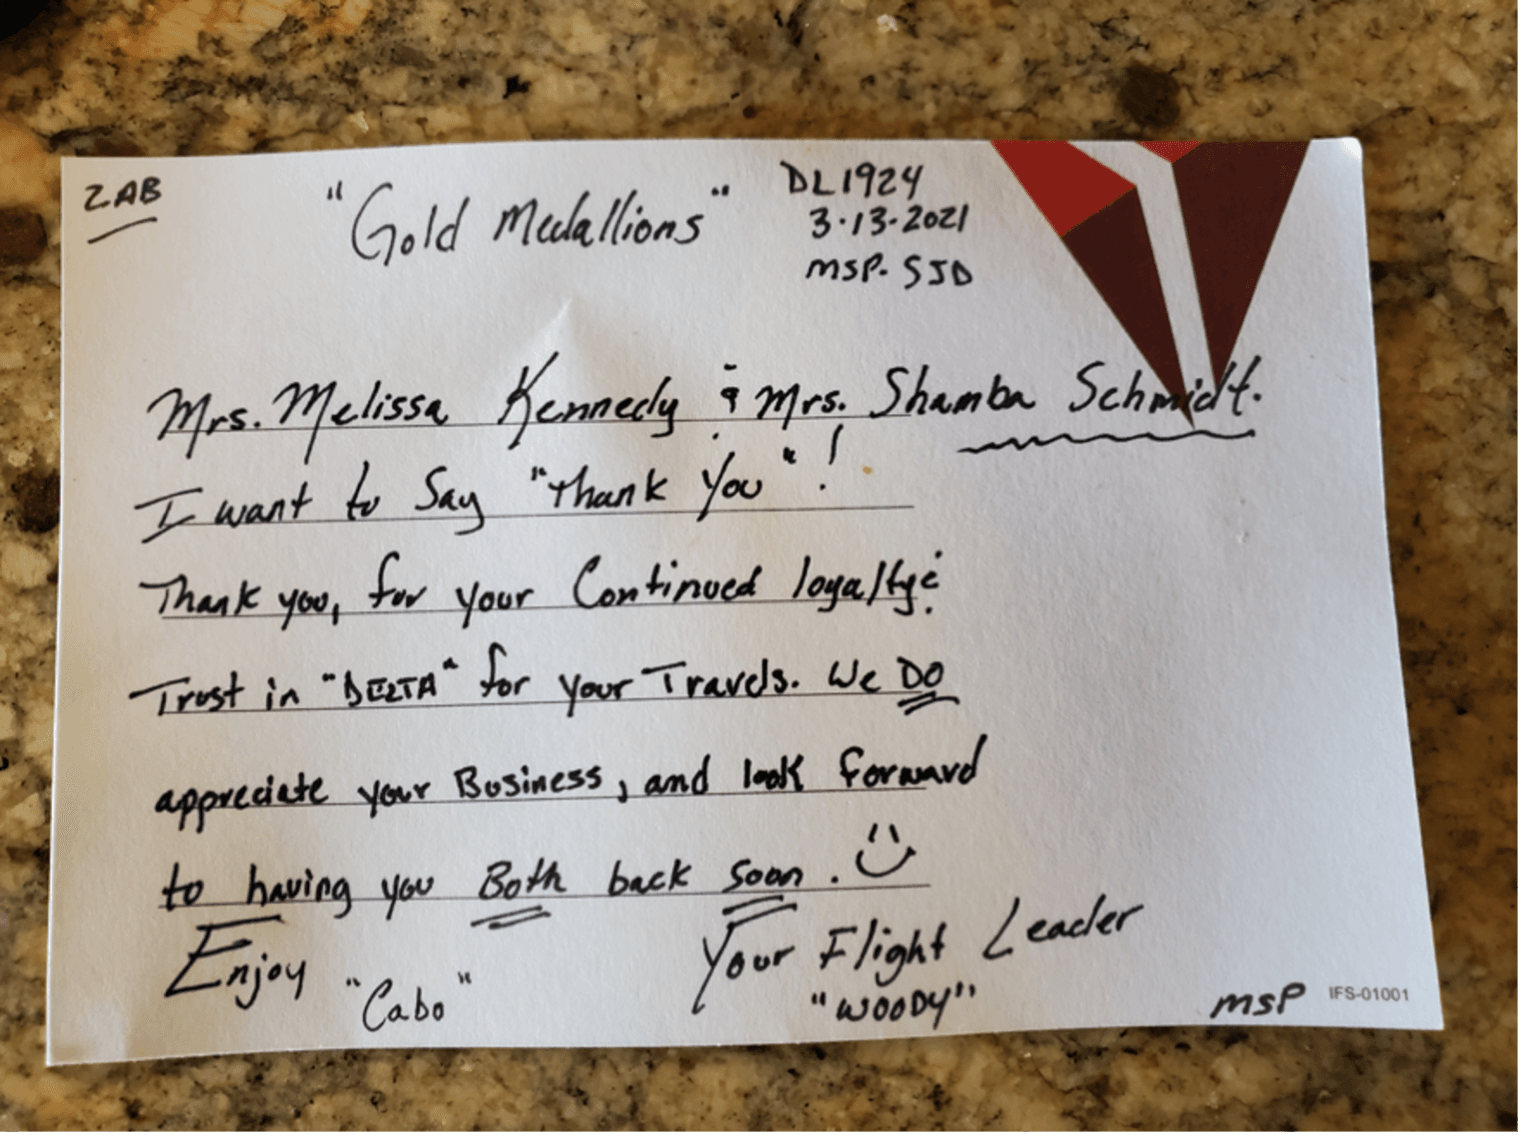 2AB
"Gold Medallions"
DL1924
3·13·2021
MSP- SJD
Mrs. Melissa Kennedy & Mrs. Shamba Schmidt.
I want to Say "Thank You"!
Thank you, for your Continued loyalty &
Trust in "DELTA" for your Travels. We DO
appreciate your Business, and look forward
to having you Both back soon. :)
Enjoy "Cabo"
Your Flight Leader
"WOODY"
MSP
IFS-01001